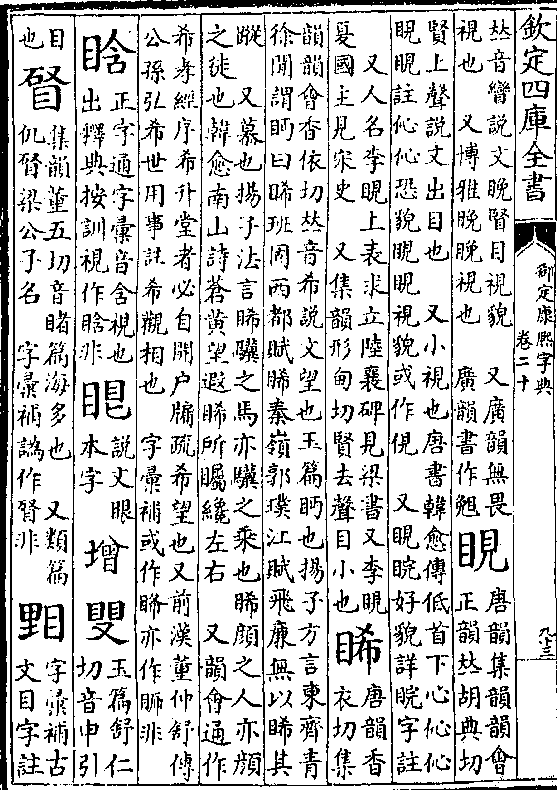 欽定四庫全書
御定康熙字典
卷二十
𠀤音蠻說文晚賢目視貌 又廣韻無畏
視也 又博雅晚晚視也 廣韻書作
睍
唐韻集韻韻會
正韻𠀤胡典切
賢上聲說文出目也 又小視也唐書韓愈傳低首下心伈伈
睍睍註伈伈恐貌睍睍視貌或作俔 又睍睆好貌詳睆字註
又人名李睍上表求立陸襄碑見梁書又李睍
夏國主見宋史 又集韻形甸切賢去聲目小也
睎
唐韻香
衣切集
韻韻會香依切𠀤音希說文望也玉篇眄也揚子方言東齊青
徐閒謂眄曰睎班固西都賦睎秦嶺郭璞江賦飛廉無以睎其
蹤 又慕也揚子法言睎驥之馬亦驥之乘也睎顏之人亦顏
之徒也韓愈南山詩蒼黃望遐睎所矚纔左右 又韻會通作
希孝經序希升堂者必自開户牖疏希望也又前漢董仲舒傳
公孫弘希世用事註希觀相也 字彙補或作 亦作 非
正字通字彙音含視也
出釋典按訓視作 非
說文眼
本字
增
玉篇舒仁
切音申引
目
也
集韻董五切音睹篇海多也 又類篇
仉 梁公子名 字彙補譌作 非
字彙補古
文目字註